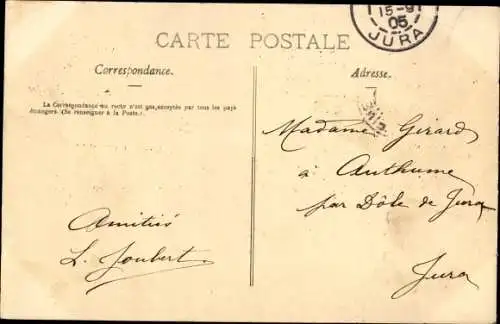 15-9
05
JURA
CARTE POSTALE
Correspondance.
Adresse.
La Correspondance au recto n'est pas acceptée par tous les pays
étrangers. (Se renseigner à la Poste.)
Madame Girard
à Authume
par Dôle de Jura
Jura
Amitiés
L. Joubert